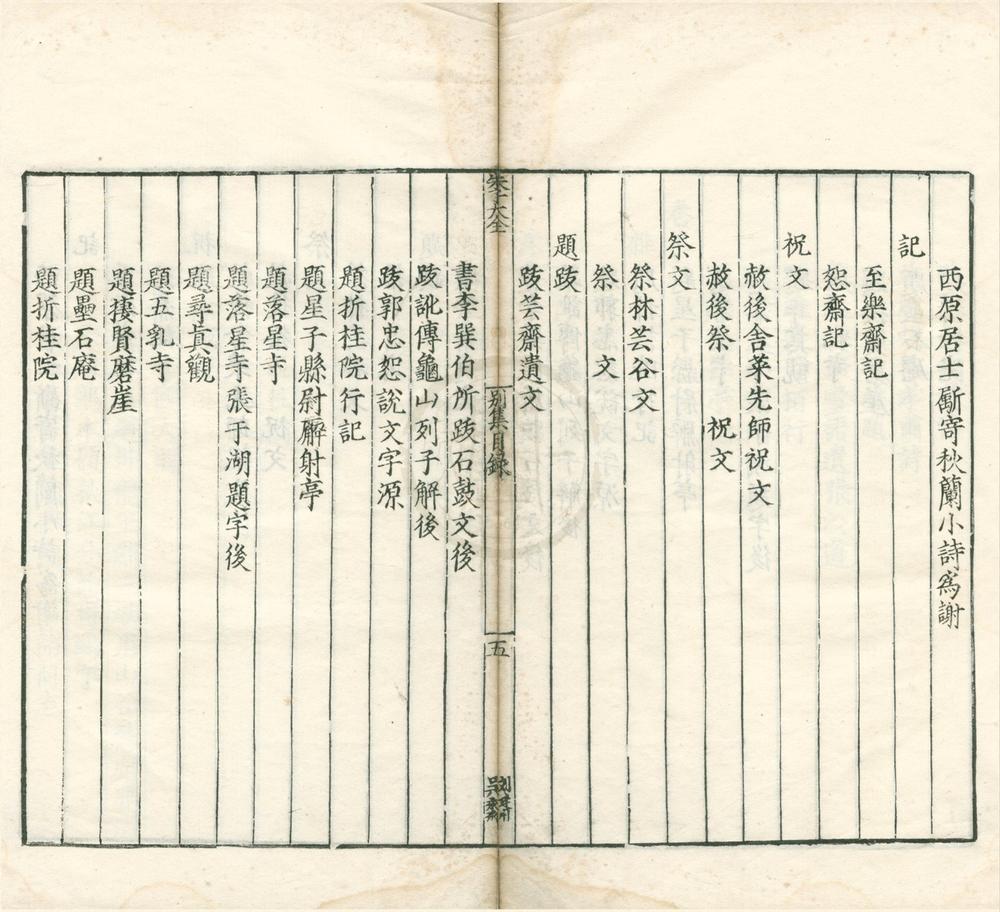 西原居士斸寄秋蘭小詩爲謝
記
至樂齋記
恕齋記
祝文
赦後舍菜先師祝文
赦後祭　祝文
祭文
祭林芸谷文
祭　文
題跋
跋芸齋遺文
朱子大全
別集目録
五
書李巽伯所跋石鼓文後
跋訛傳龜山列子解後
跋郭忠恕說文字源
題折桂院行記
題星子縣尉廨射亭
題落星寺
題落星寺張于湖題字後
題尋眞觀
題五乳寺
題摟賢磨崖
題壘石庵
題折桂院